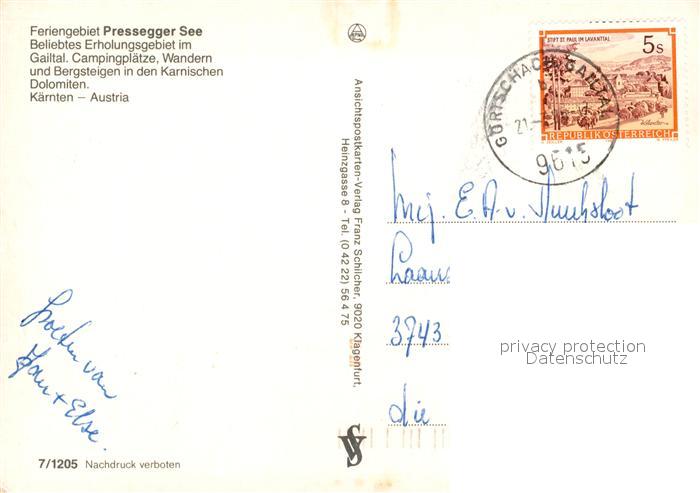 Feriengebiet Pressegger See
Beliebtes Erholungsgebiet im
Gailtal. Campingplätze, Wandern
und Bergsteigen in den Karnischen
Dolomiten.
Kärnten – Austria
STIFT ST. PAUL IM LAVANTTAL
5s
REPUBLIK ÖSTERREICH
GÖRTSCHACH, GAILTAL
9615
Ansichtspostkarten-Verlag Franz Schilcher, 9020 Klagenfurt,
Heinzgasse 8 - Tel. (0 42 22) 56 4 75
Mej. E.A.v.
3743
die
privacy protection
Datenschutz
Groeten van
Jan + Else.
7/1205 Nachdruck verboten